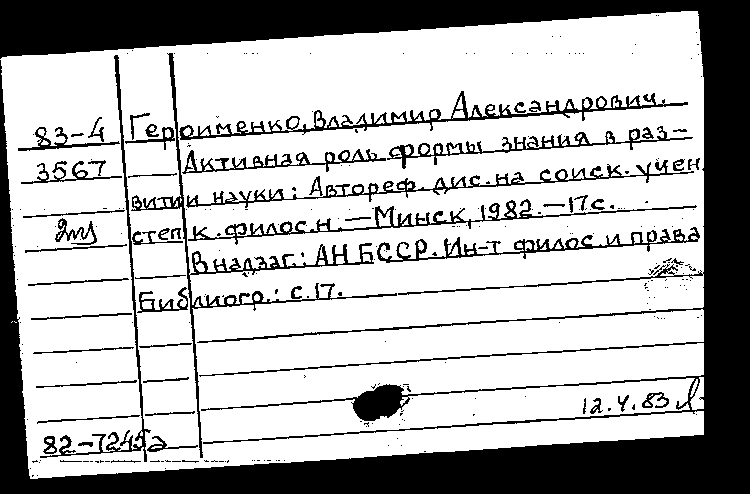 83-4 Героименко, Владимир Александрович.
3567 Активная роль формы знания в раз-
витии науки: Автореф. дис. на соиск. учен.
степ. к. филос. н. — Минск, 1982. — 17 с.
В надзаг.: АН БССР. Ин-т филос. и права
Библиогр.: с. 17.
12.4.83
82-7245а